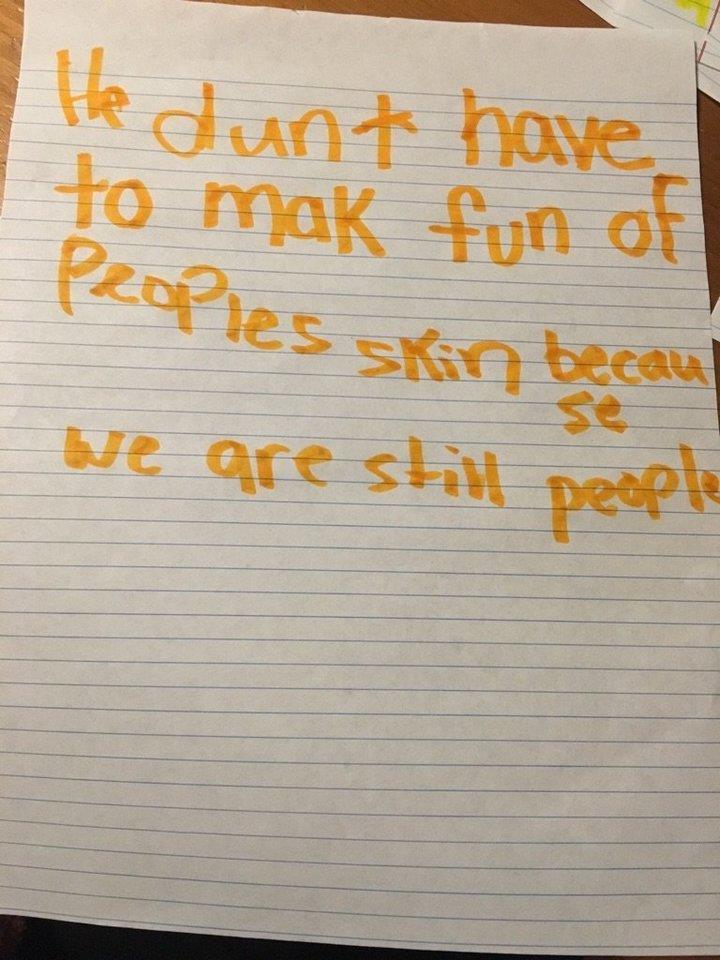 He dunt have
to mak fun of
Peoples skin becau
se
we are still people